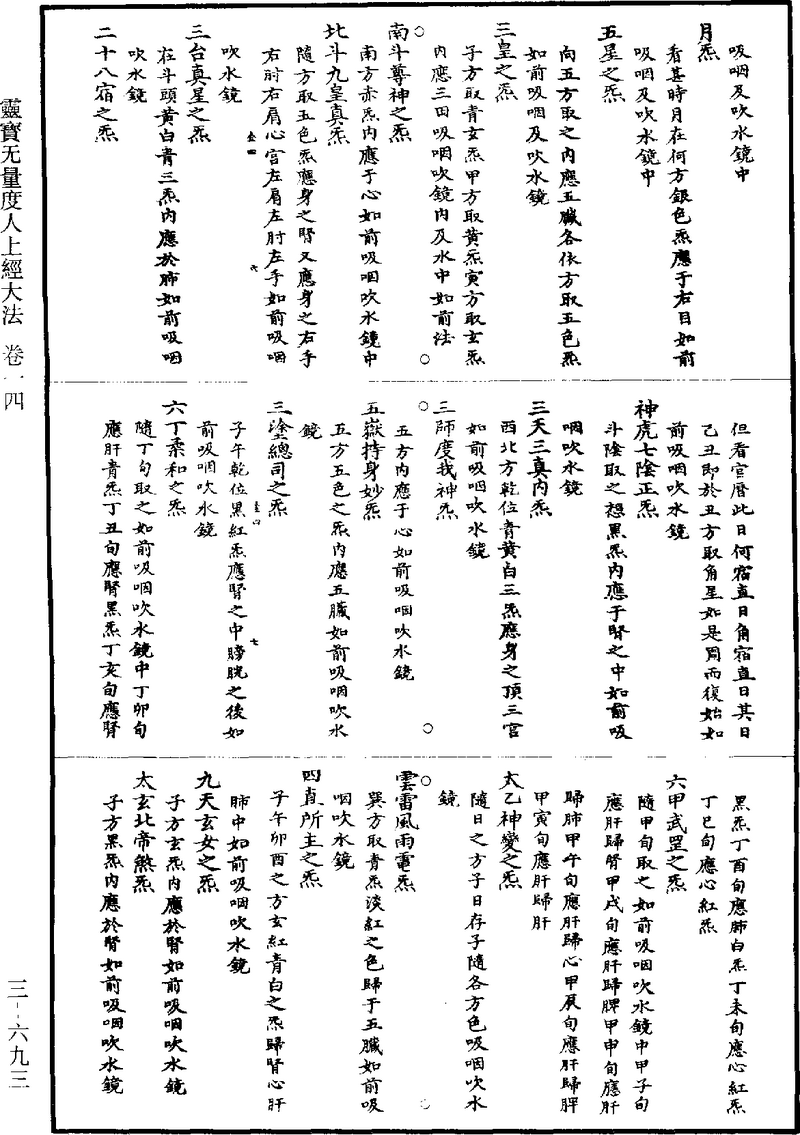 吸咽及吹水鏡中
月炁
看甚時月在何方銀色炁應于右目如前
吸咽及吹水鏡中
五星之炁
向五方取之内應五臟各依方取五色炁
如前吸咽及吹水鏡
三皇之炁
子方取青玄炁甲方取黃炁寅方取玄炁
内應三田吸咽吹鏡内及水中如前法
南斗尊神之炁
南方赤炁内應于心如前吸咽吹水鏡中
北斗九皇真炁
隨方取五色炁應身之腎又應身之右手
右肘右肩心宫左肩左肘左手如前吸咽
吹水鏡
三台真星之炁
在斗頭黃白青三炁内應於肺如前吸咽
吹水鏡
二十八宿之炁
但看官曆此日何宿直日角宿直日其日
乙丑即於丑方取角星如是周而復始如
前吸咽吹水鏡
神虎七陰正炁
斗陰取之想黑炁内應于腎之中如前吸
咽吹水鏡
三天三真内炁
西北方乾位青黃白三炁應身之頂三宫
如前吸咽吹水鏡
三師度我神炁
五方内應于心如前吸咽吹水鏡
五嶽持身妙炁
五方五色之炁内應五臟如前吸咽吹水
鏡
三塗總司之炁
子午乾位黑紅炁應腎之中膀胱之後如
前吸咽吹水鏡
六丁柔和之炁
隨丁旬取之如前吸咽吹水鏡中丁卯旬
應肝青炁丁丑旬應腎黑炁丁亥旬應腎
黑炁丁酉旬應肺白炁丁未旬應心紅炁
丁巳旬應心紅炁
六甲武罡之炁
隨甲旬取之如前吸咽吹水鏡中甲子旬
應肝歸腎甲戌旬應肝歸脾甲申旬應肝
歸肺甲午旬應肝歸心甲辰旬應肝歸脾
甲寅旬應肝歸肝
太乙神變之炁
隨日之方子日存子隨各方色吸咽吹水
鏡
雲雷風雨電炁
巽方取青炁淡紅之色歸于五臟如前吸
咽吹水鏡
四直所主之炁
子午卯酉之方玄紅青白之炁歸腎心肝
肺中如前吸咽吹水鏡
九天玄女之炁
子方玄炁内應於腎如前吸咽吹水鏡
太玄北帝煞炁
子方黑炁内應於腎如前吸咽吹水鏡
靈寶无量度人上經大法 卷一四
三－六九三